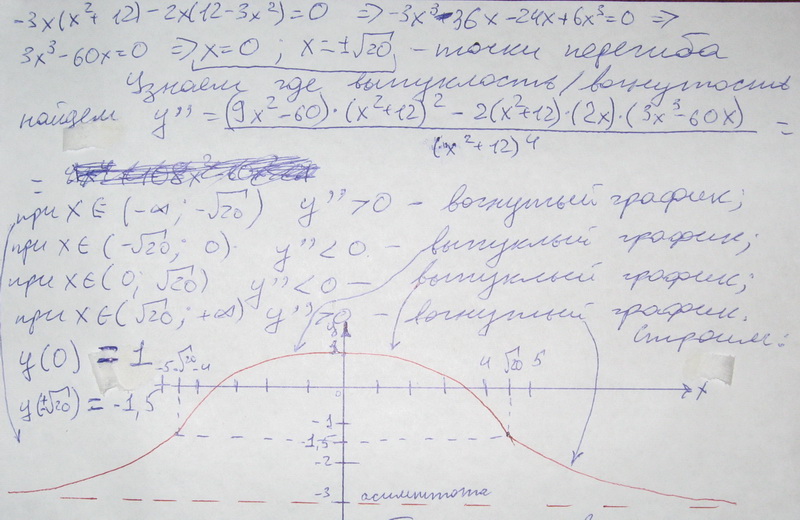 -3x(x²+12) - 2x(12-3x²)=0 => -3x³-36x-24x+6x³=0 =>
3x³-60x=0 => x=0 ; x=±√20 - точки перегиба
Узнаем где выпуклость/вогнутость
найдем y'' = (9x²-60)·(x²+12)² - 2(x²+12)·(2x)·(3x³-60x) / (x²+12)⁴ =
=
при x∈(-∞; -√20) y''>0 - вогнутый график;
при x∈(-√20; 0) y''<0 - выпуклый график;
при x∈(0; √20) y''<0 - выпуклый график;
при x∈(√20; +∞) y''>0 - вогнутый график.
Строим:
y(0) = 1
y(±√20) = -1,5
y
1
-5 -√20 -4 0 4 √20 5 x
-1
-1,5
-2
-3 асимптота